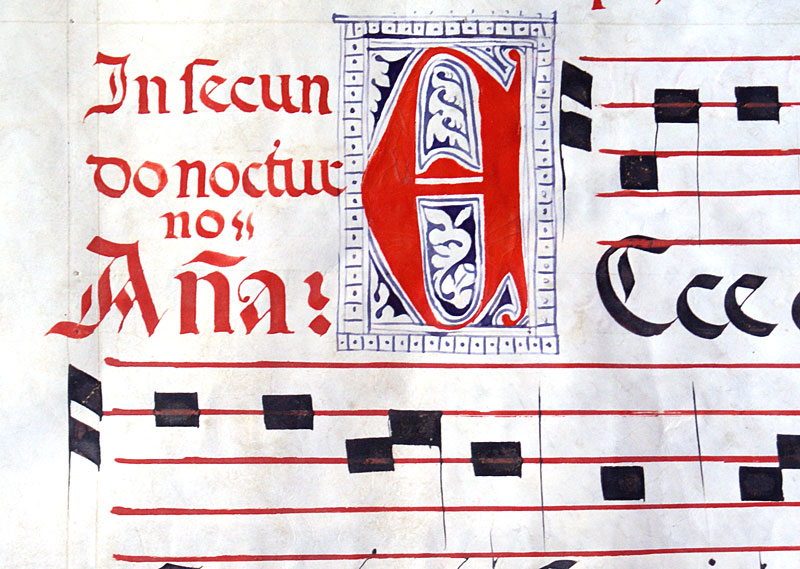 In secun
do noctur
no
Aña:
E Cce